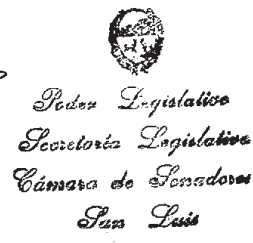 Poder Legislativo
Secretoría Legislativa
Cámara de Senadores
San Luis